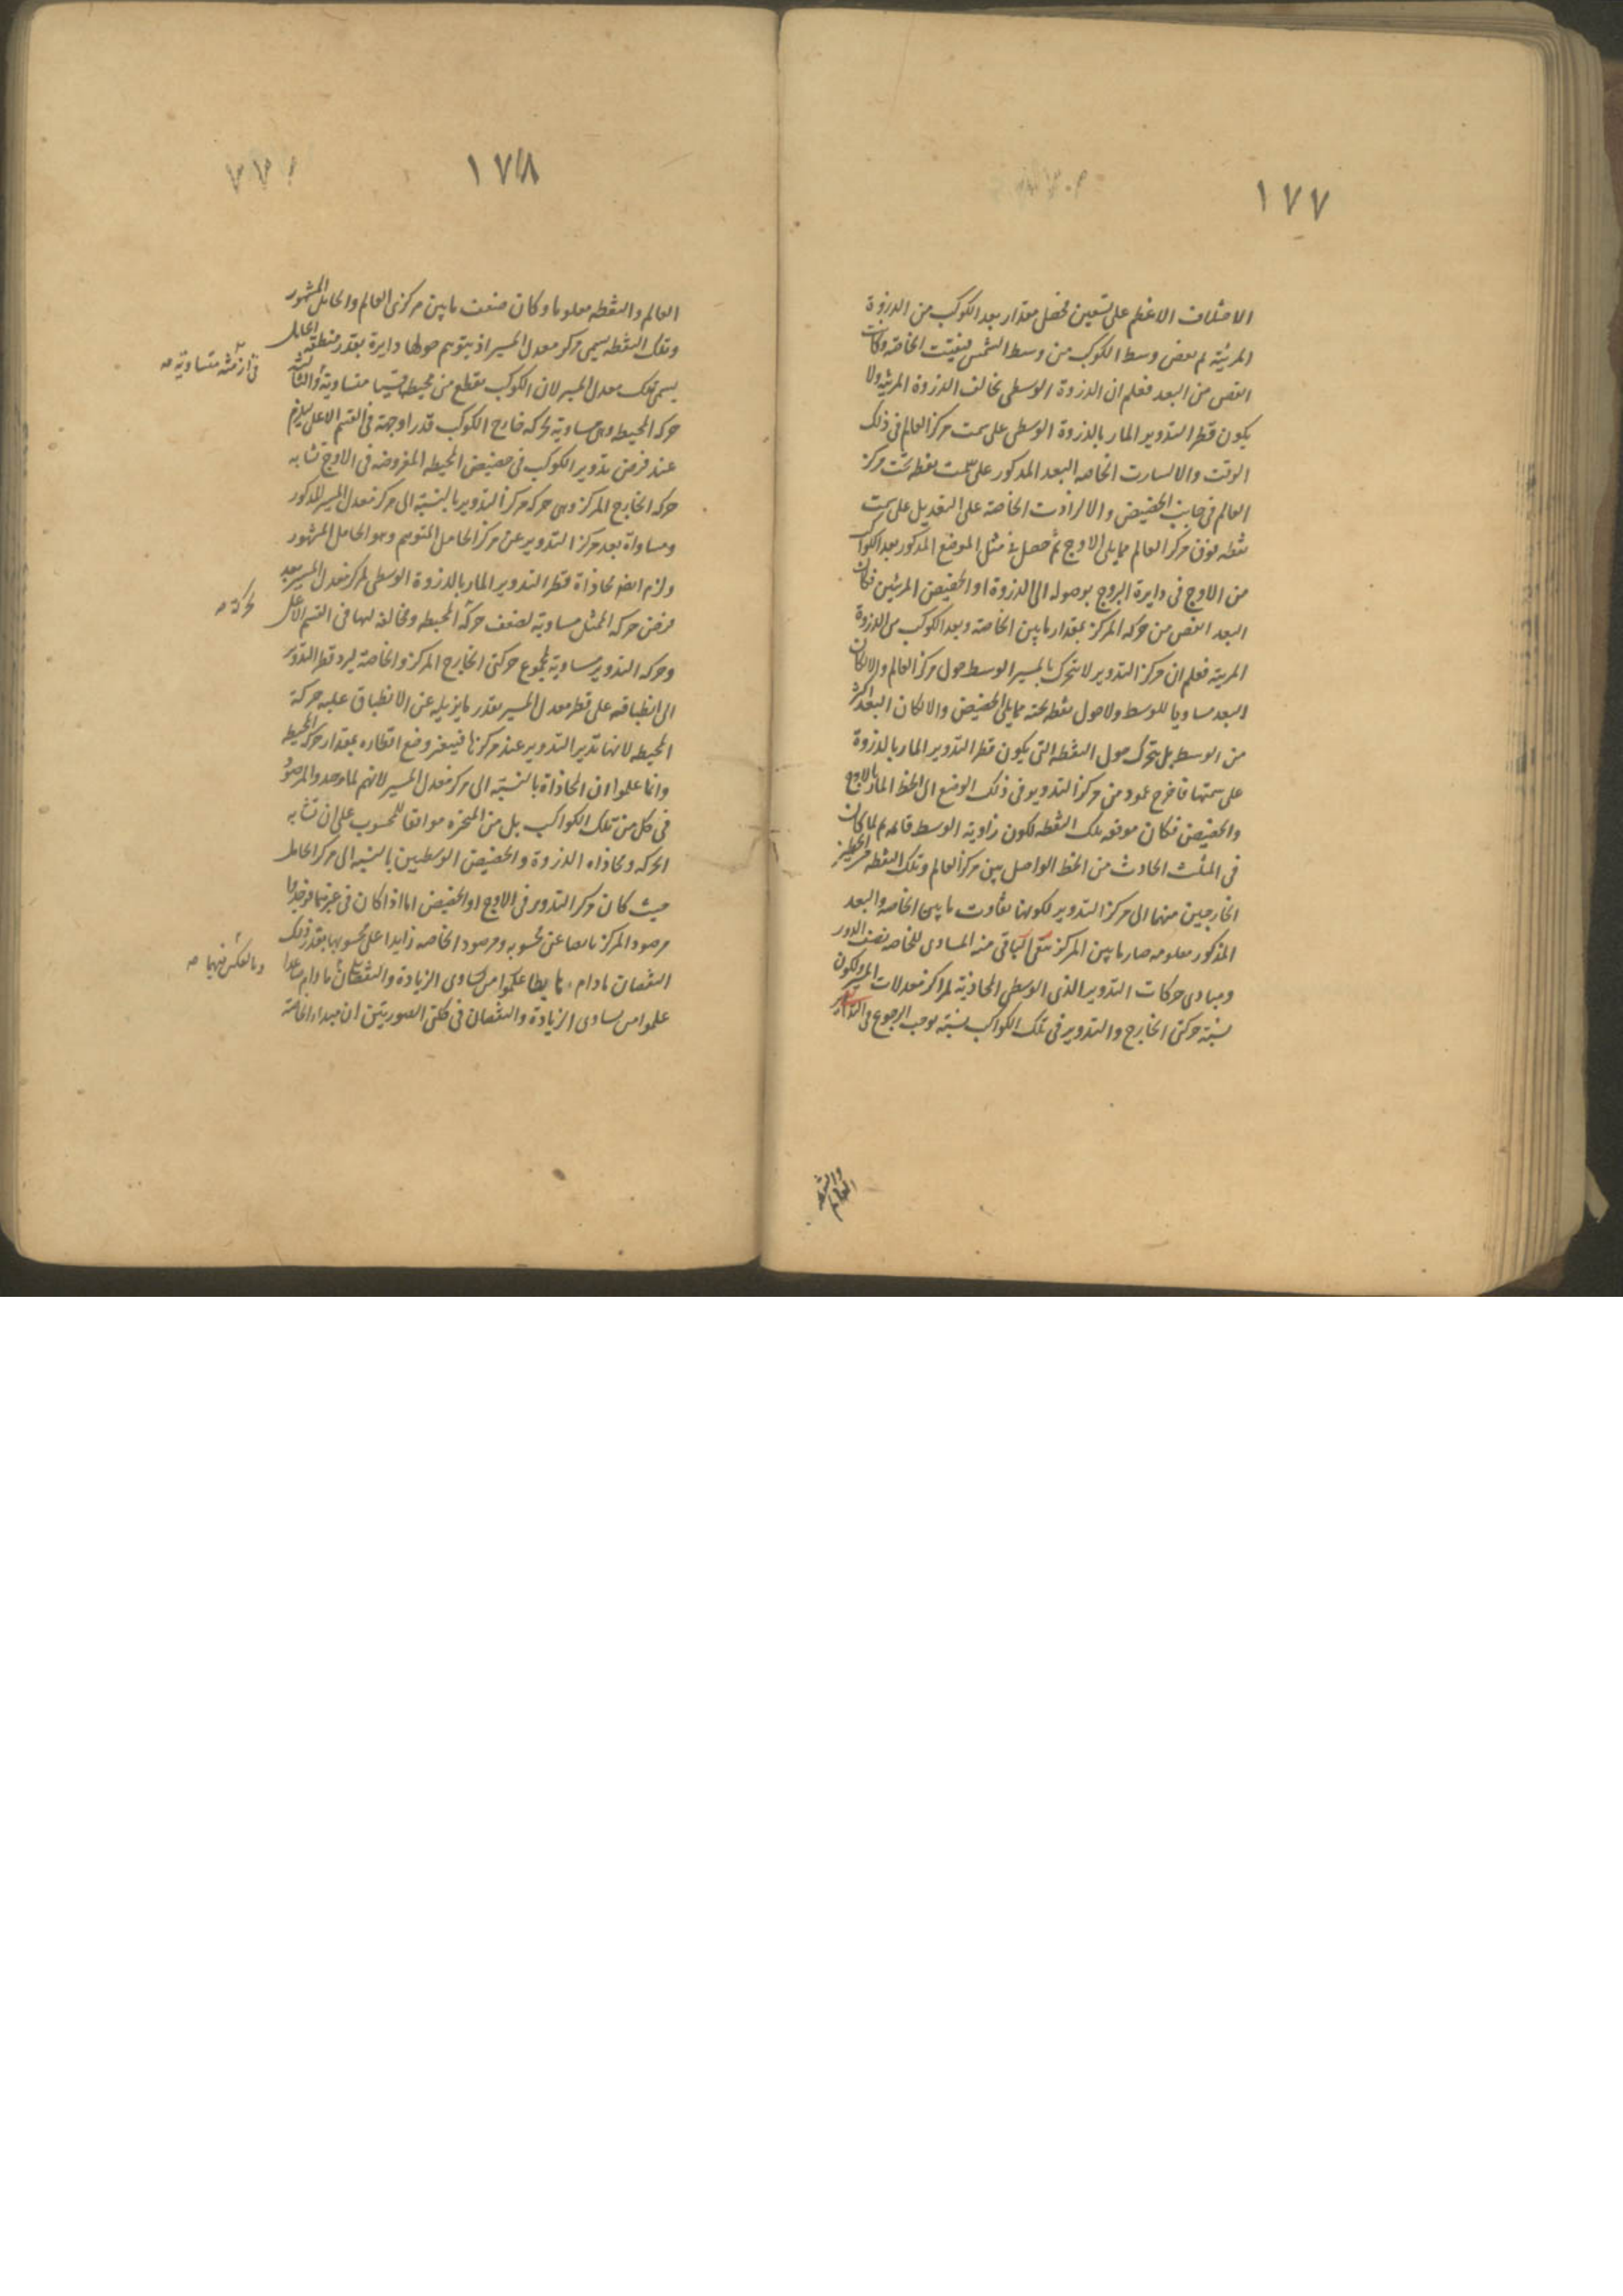 ١٧٧
الاختلاف الاعظم على تسعين فحصل مقدار بعد الكوكب من الذروة
المرئية ثم نقص وسط الكوكب من وسط الشمس فبقيت الخاصة وكانت
انقص من البعد فعلم ان الذروة الوسطى تخالف الذروة المرئية ولا
يكون قطر التدوير المار بالذروة الوسطى على سمت مركز العالم فى ذلك
الوقت والا لساوت الخاصه البعد المذكور على سمت نقطه تحت مركز
العالم فى جانب الحضيض والا لزادت الخاصة على التعديل على سمت
نقطه فوق مركز العالم مما يلى الاوج ثم حصل فى مثل الموضع المذكور بعد الكوكب
من الاوج فى دايرة البروج بوصوله الى الذروة او الحضيض المرئيين فكان
البعد انقص من حركه المركز بمقدار ما بين الخاصة وبعد الكوكب من الذروة
المريية فعلم ان مركز التدوير لا يتحرك بالمسير الوسط حول مركز العالم والا لكان
البعد مساويا للوسط ولا حول نقطه تحته مما يلى الحضيض والا لكان البعد اكثر
من الوسط بل يتحرك حول النقطه التى يكون قطر التدوير المار بالذروة
على سمتها فاخرج عمود من مركز التدوير فى ذلك الوضع الى الخط المار بالاوج
والحضيض فكان موقعه تلك النقطه لكون زاوية الوسط قايمه ثم لما كان
فى المثلث الحادث من الخط الواصل بين مركز العالم وتلك النقطه والخطين
الخارجين منهما الى مركز التدوير لكونها تفاوت ما بين الخاصه والبعد
المذكور معلومه صار ما بين المركز الباقى منه المساوى للخاصه نصف الدور
ومبادى حركات التدوير الذى الوسطى المحاذية لمراكز معدلات المسير ولكون
نسبة حركتى الخارج والتدوير فى تلك الكواكب نسبة توجب الرجوع فى
والنقطه
العالم
١٧٨
العالم والنقطه معلوما وكان ضعف ما بين مركزى العالم والحامل المشهور
وتلك النقطه يسمى مركز معدل المسير اذ يتوهم حولها دايرة بقدر منطقه الحامل
يسمى فلك معدل المسير لان الكوكب يقطع من محيطها قسيا متساوية والثالث
فى ازمنة متساوية صح
حركه المحيطه وهى مساوية لحركه خارج الكوكب قدرا وجهة فى القسم الاعلى يلزم
عند فرض تدوير الكوكب فى حضيض المحيطه المفروضه فى الاوج تشابه
حركه الخارج المركز وهى حركه مركز التدوير بالنسبة الى مركز معدل المسير المذكور
ومساواة بعد مركز التدوير عن مركز الحامل المتوهم وهو الحامل المشهور
ولزم ايضا محاذاة قطر التدوير المار بالذروة الوسطى لمركز معدل المسير بعد
فرض حركه الممثل مساوية لضعف حركة المحيطه ومخالفة لها فى القسم الاعلى
لحركة صح
وحركه التدوير مساوية لمجموع حركتى الخارج المركز والخاصة ليرد قطر التدوير
الى انطباقه على قطر معدل المسير بقدر ما يزيله عن الانطباق عليه حركة
المحيطه لانها تدير التدوير عند مركزها فيتغير وضع اقطاره بمقدار حركه المحيطه
وانما علموا ان المحاذاة بالنسبة الى مركز معدل المسير لانهم لما وجدوا المرصود
فى كل من تلك الكواكب بل من المتحيره موافقا للمحسوب على ان تشابه
الحركه ومحاذاه الذروة والحضيض الوسطيين بالنسبه الى مركز الحامل
حيث كان مركز التدوير فى الاوج او الحضيض اما اذا كان فى غيرهما فوجدوا
مرصود المركز ناقصا عن محسوبه ومرصود الخاصه زايدا على محسوبها بقدر ذلك
النقصان مادام هابطا علموا من تساوى الزيادة والنقصان مادام صاعدا
وبالعكس فيهما صح
علموا من تساوى الزيادة والنقصان فى كلتى الصورتين ان مبداء الخاصة